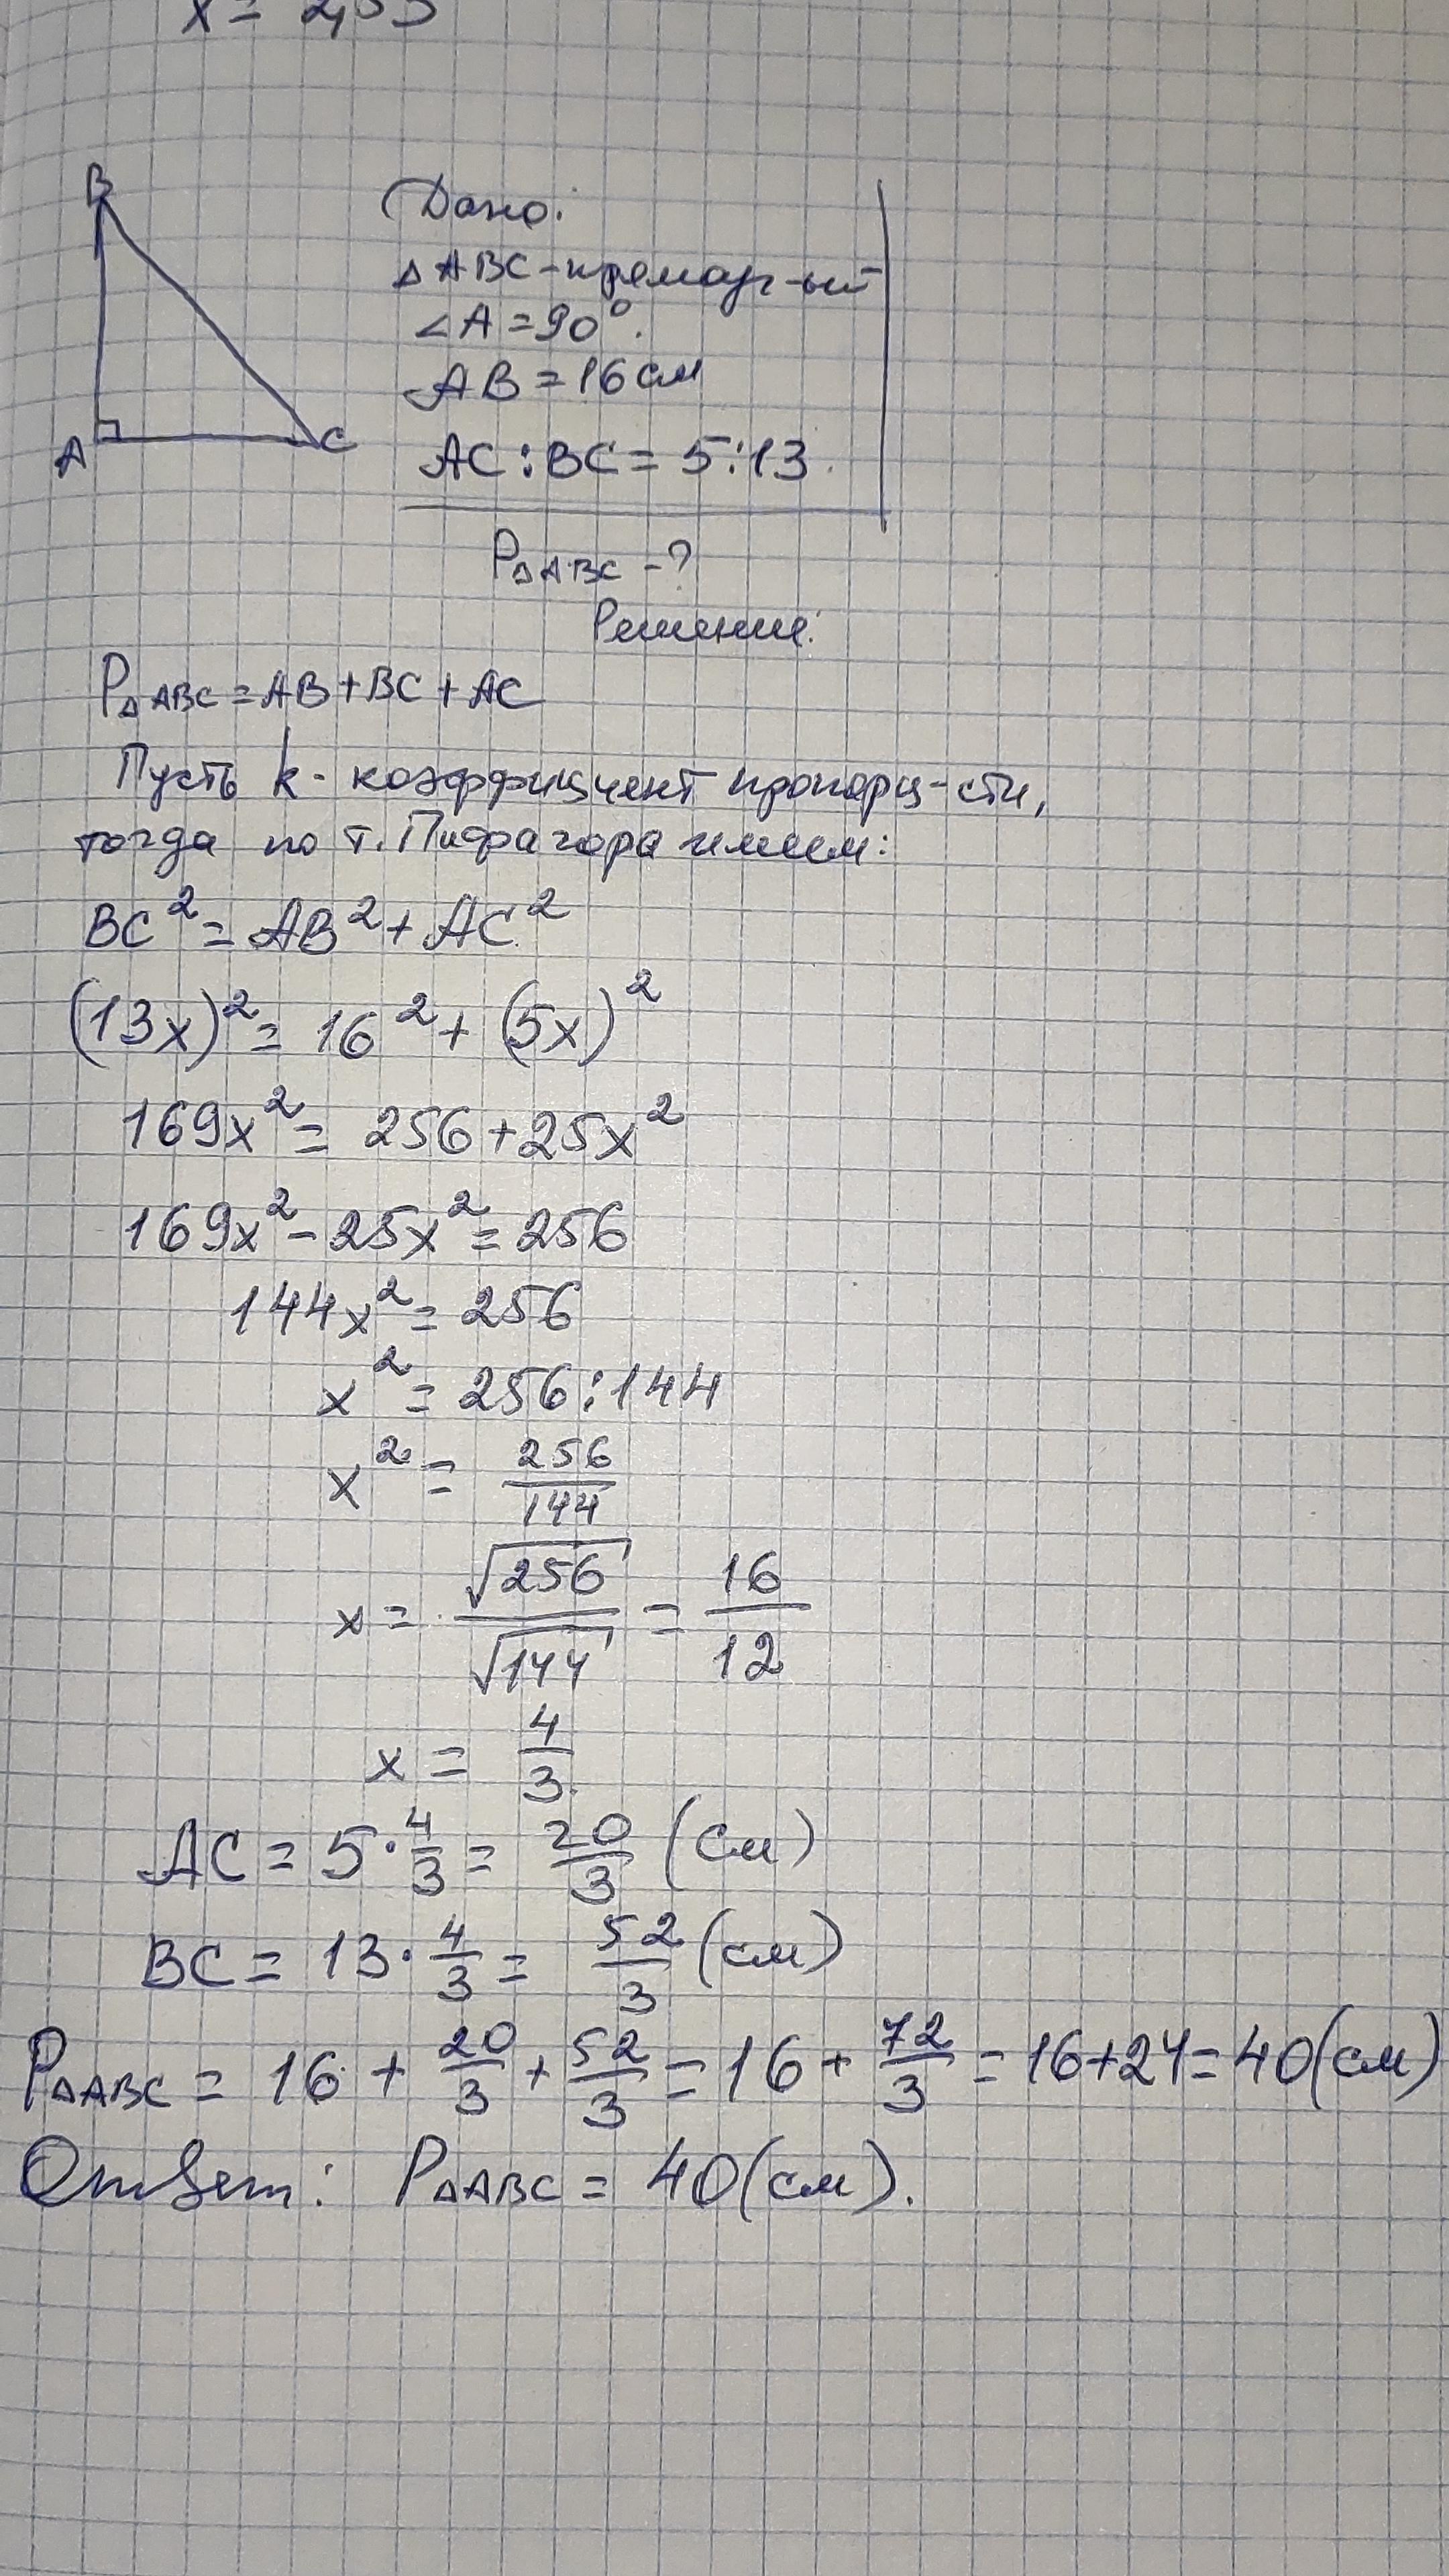 B
A
C
Дано:
△ABC-прямоуг-ый
∠A=90°.
AB=16см
AC:BC=5:13.
P△ABC-?
Решение:
P△ABC=AB+BC+AC
Пусть k- коэффициент пропорц-сти,
тогда по т.Пифагора имеем:
BC²=AB²+AC²
(13x)²=16²+(5x)²
169x²=256+25x²
169x²-25x²=256
144x²=256
x²=256:144
x²=256/144
x=√256/√144=16/12
x=4/3
AC=5·4/3=20/3 (см)
BC=13·4/3=52/3 (см)
P△ABC=16+20/3+52/3=16+72/3=16+24=40(см)
Ответ: P△ABC=40(см).